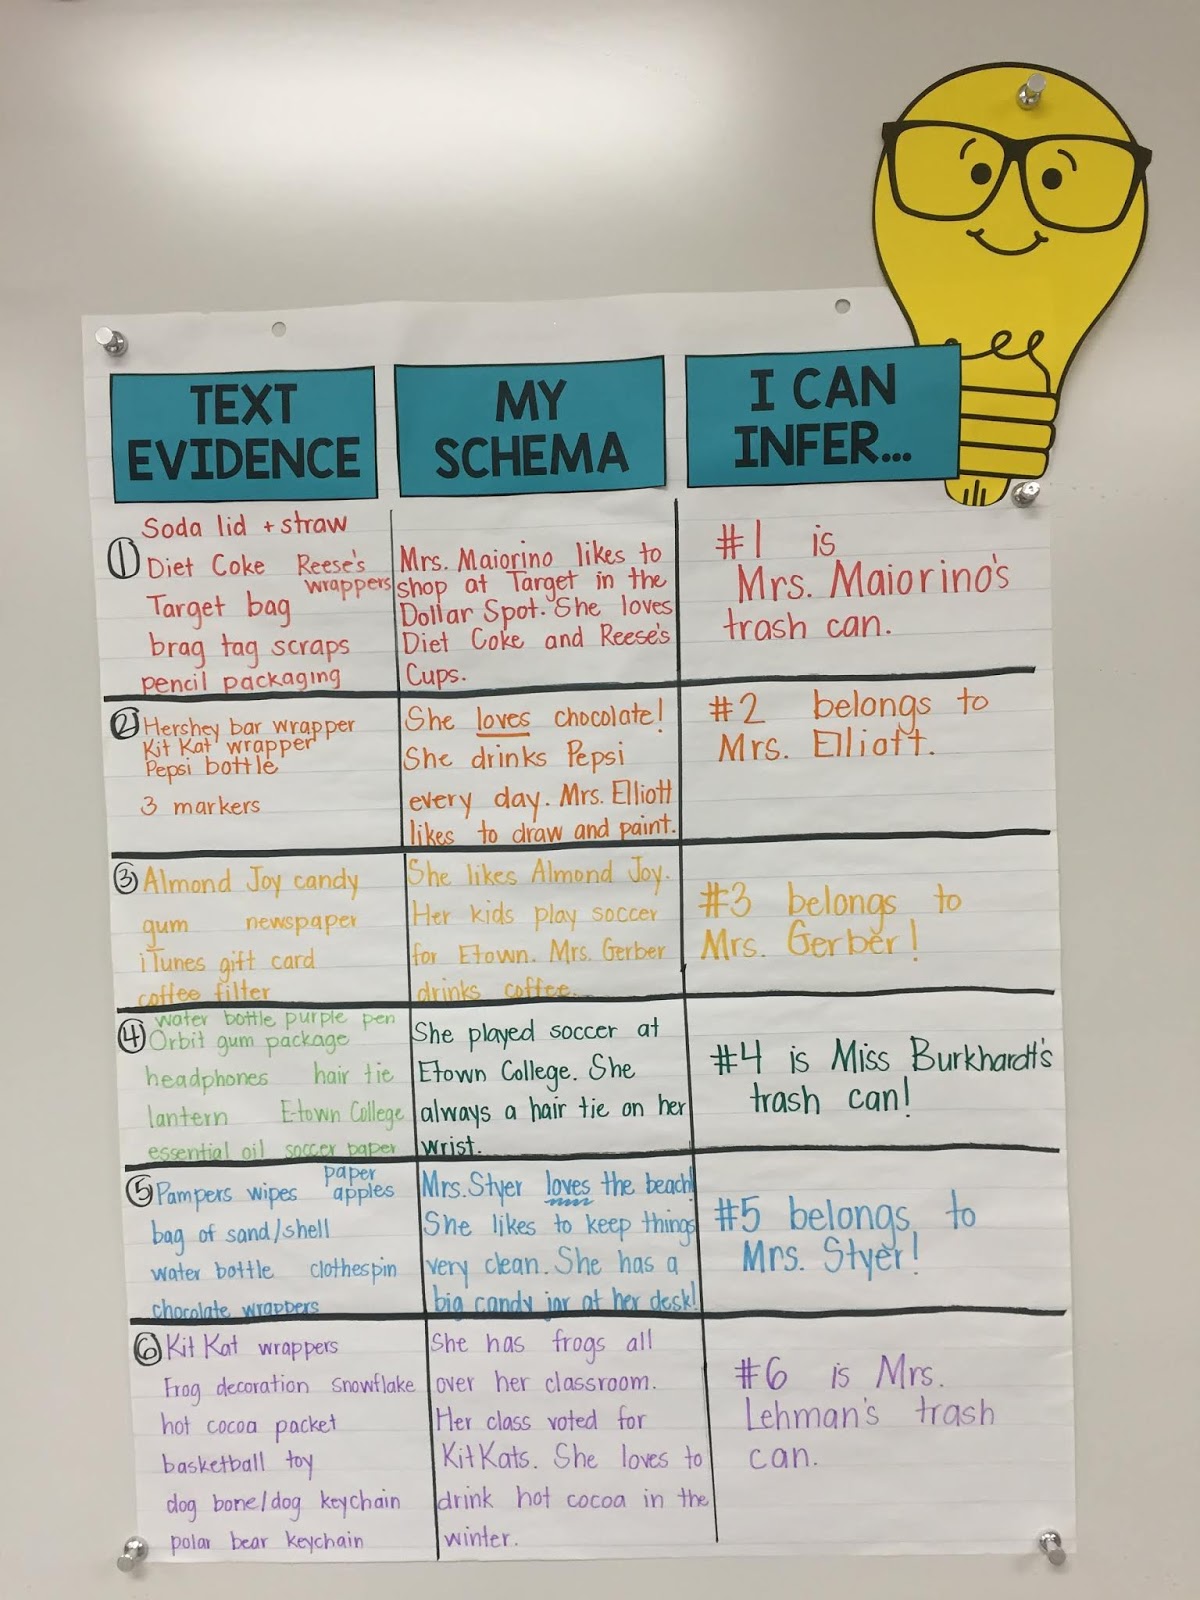 TEXT
EVIDENCE
MY
SCHEMA
I CAN
INFER...
1
Soda lid + straw
Diet Coke Reese's
wrappers
Target bag
brag tag scraps
pencil packaging
Mrs. Maiorino likes to
shop at Target in the
Dollar Spot. She loves
Diet Coke and Reese's
Cups.
#1 is
Mrs. Maiorino's
trash can.
2
Hershey bar wrapper
Kit Kat wrapper
Pepsi bottle
3 markers
She loves chocolate!
She drinks Pepsi
every day. Mrs. Elliott
likes to draw and paint.
#2 belongs to
Mrs. Elliott.
3
Almond Joy candy
gum newspaper
iTunes gift card
coffee filter
She likes Almond Joy.
Her kids play soccer
for Etown. Mrs. Gerber
drinks coffee.
#3 belongs to
Mrs. Gerber!
4
water bottle purple pen
Orbit gum package
headphones hair tie
lantern E-town College
essential oil soccer paper
She played soccer at
Etown College. She
always a hair tie on her
wrist.
#4 is Miss Burkhardt's
trash can!
5
paper
Pampers wipes apples
bag of sand/shell
water bottle clothespin
chocolate wrappers
Mrs. Styer loves the beach!
She likes to keep things
very clean. She has a
big candy jar at her desk!
#5 belongs to
Mrs. Styer!
6
Kit Kat wrappers
Frog decoration snowflake
hot cocoa packet
basketball toy
dog bone/dog keychain
polar bear keychain
She has frogs all
over her classroom.
Her class voted for
KitKats. She loves to
drink hot cocoa in the
winter.
#6 is Mrs.
Lehman's trash
can.